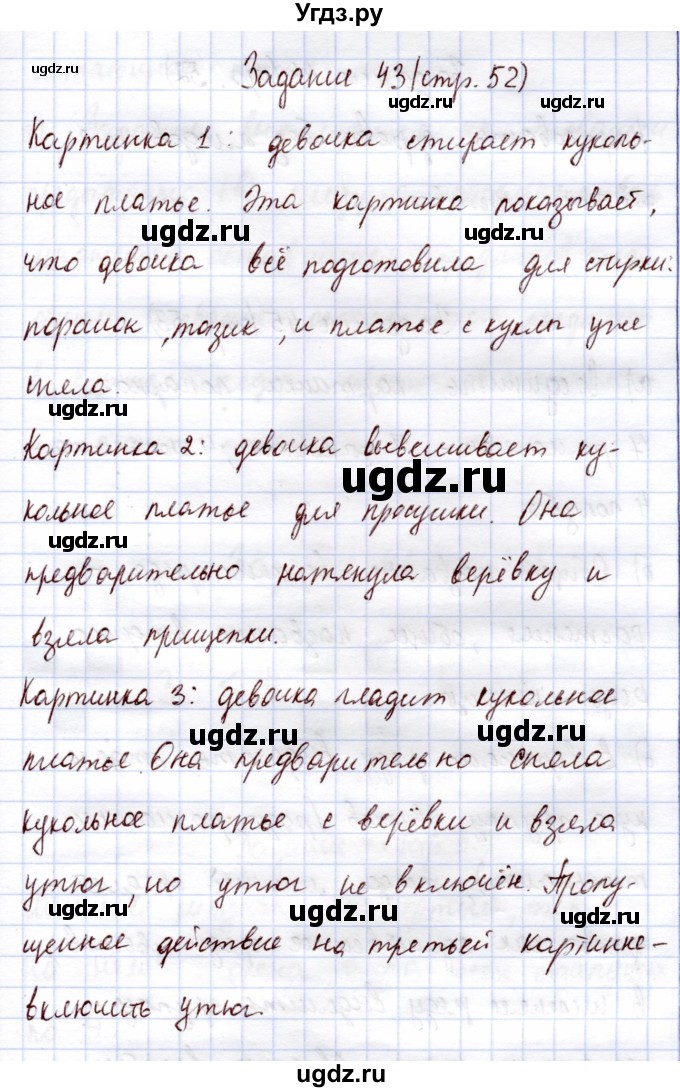 Угдз.ру
ugdz.ru
Задание 43(стр. 52)
ugdz.ru
ugdz.ru
Картинка 1: девочка стирает куколь-
ное платье. Эта картинка показывает,
ugdz.ru
ugdz.ru
что девочка всё подготовила для стирки:
порашок, тазик, и платье с куклы уже
ugdz.ru
сняла.
ugdz.ru
Картинка 2: девочка вывешивает ку-
ugdz.ru
кольное платье для просушки. Она
ugdz.ru
предварительно натянула верёвку и
взяла прищепки.
Картинка 3: девочка гладит кукольное
ugdz.ru
ugdz.ru
платье. Она предварительно сняла
кукольное платье с верёвки и взяла
утюг, но утюг не включён. Пропу-
ugdz.ru
ugdz.ru
ugdz.ru
щенное действие на третьей картинке-
включить утюг.
ugdz.ru